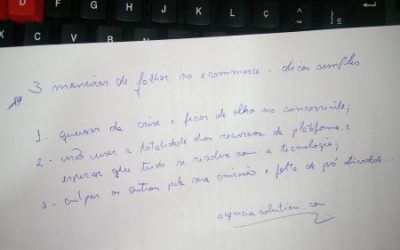 D F G H J K L Ç
3 maneiras de falhar no ecommerce - dicas simples
1 - queixar da crise e ficar de olho no concorrente;
2 - não usar a totalidade dos recursos da plataforma e
esperar que tudo se resolva com a tecnologia;
3 - culpar os outros pela sua omissão e falta de pró-atividade...
agenciasolution.com